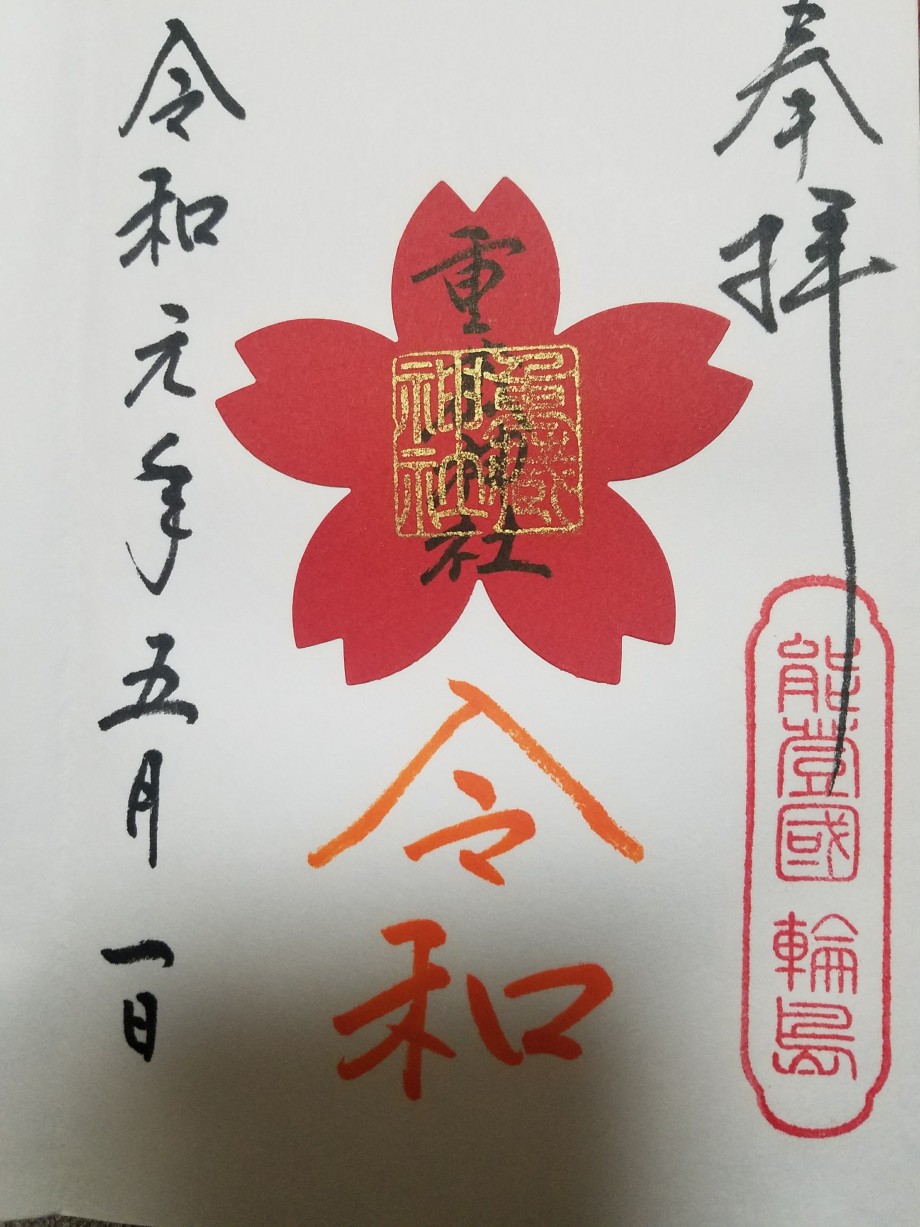 奉拝
能登國 輪島
重蔵神社
重蔵神社
令和
令和元年五月一日